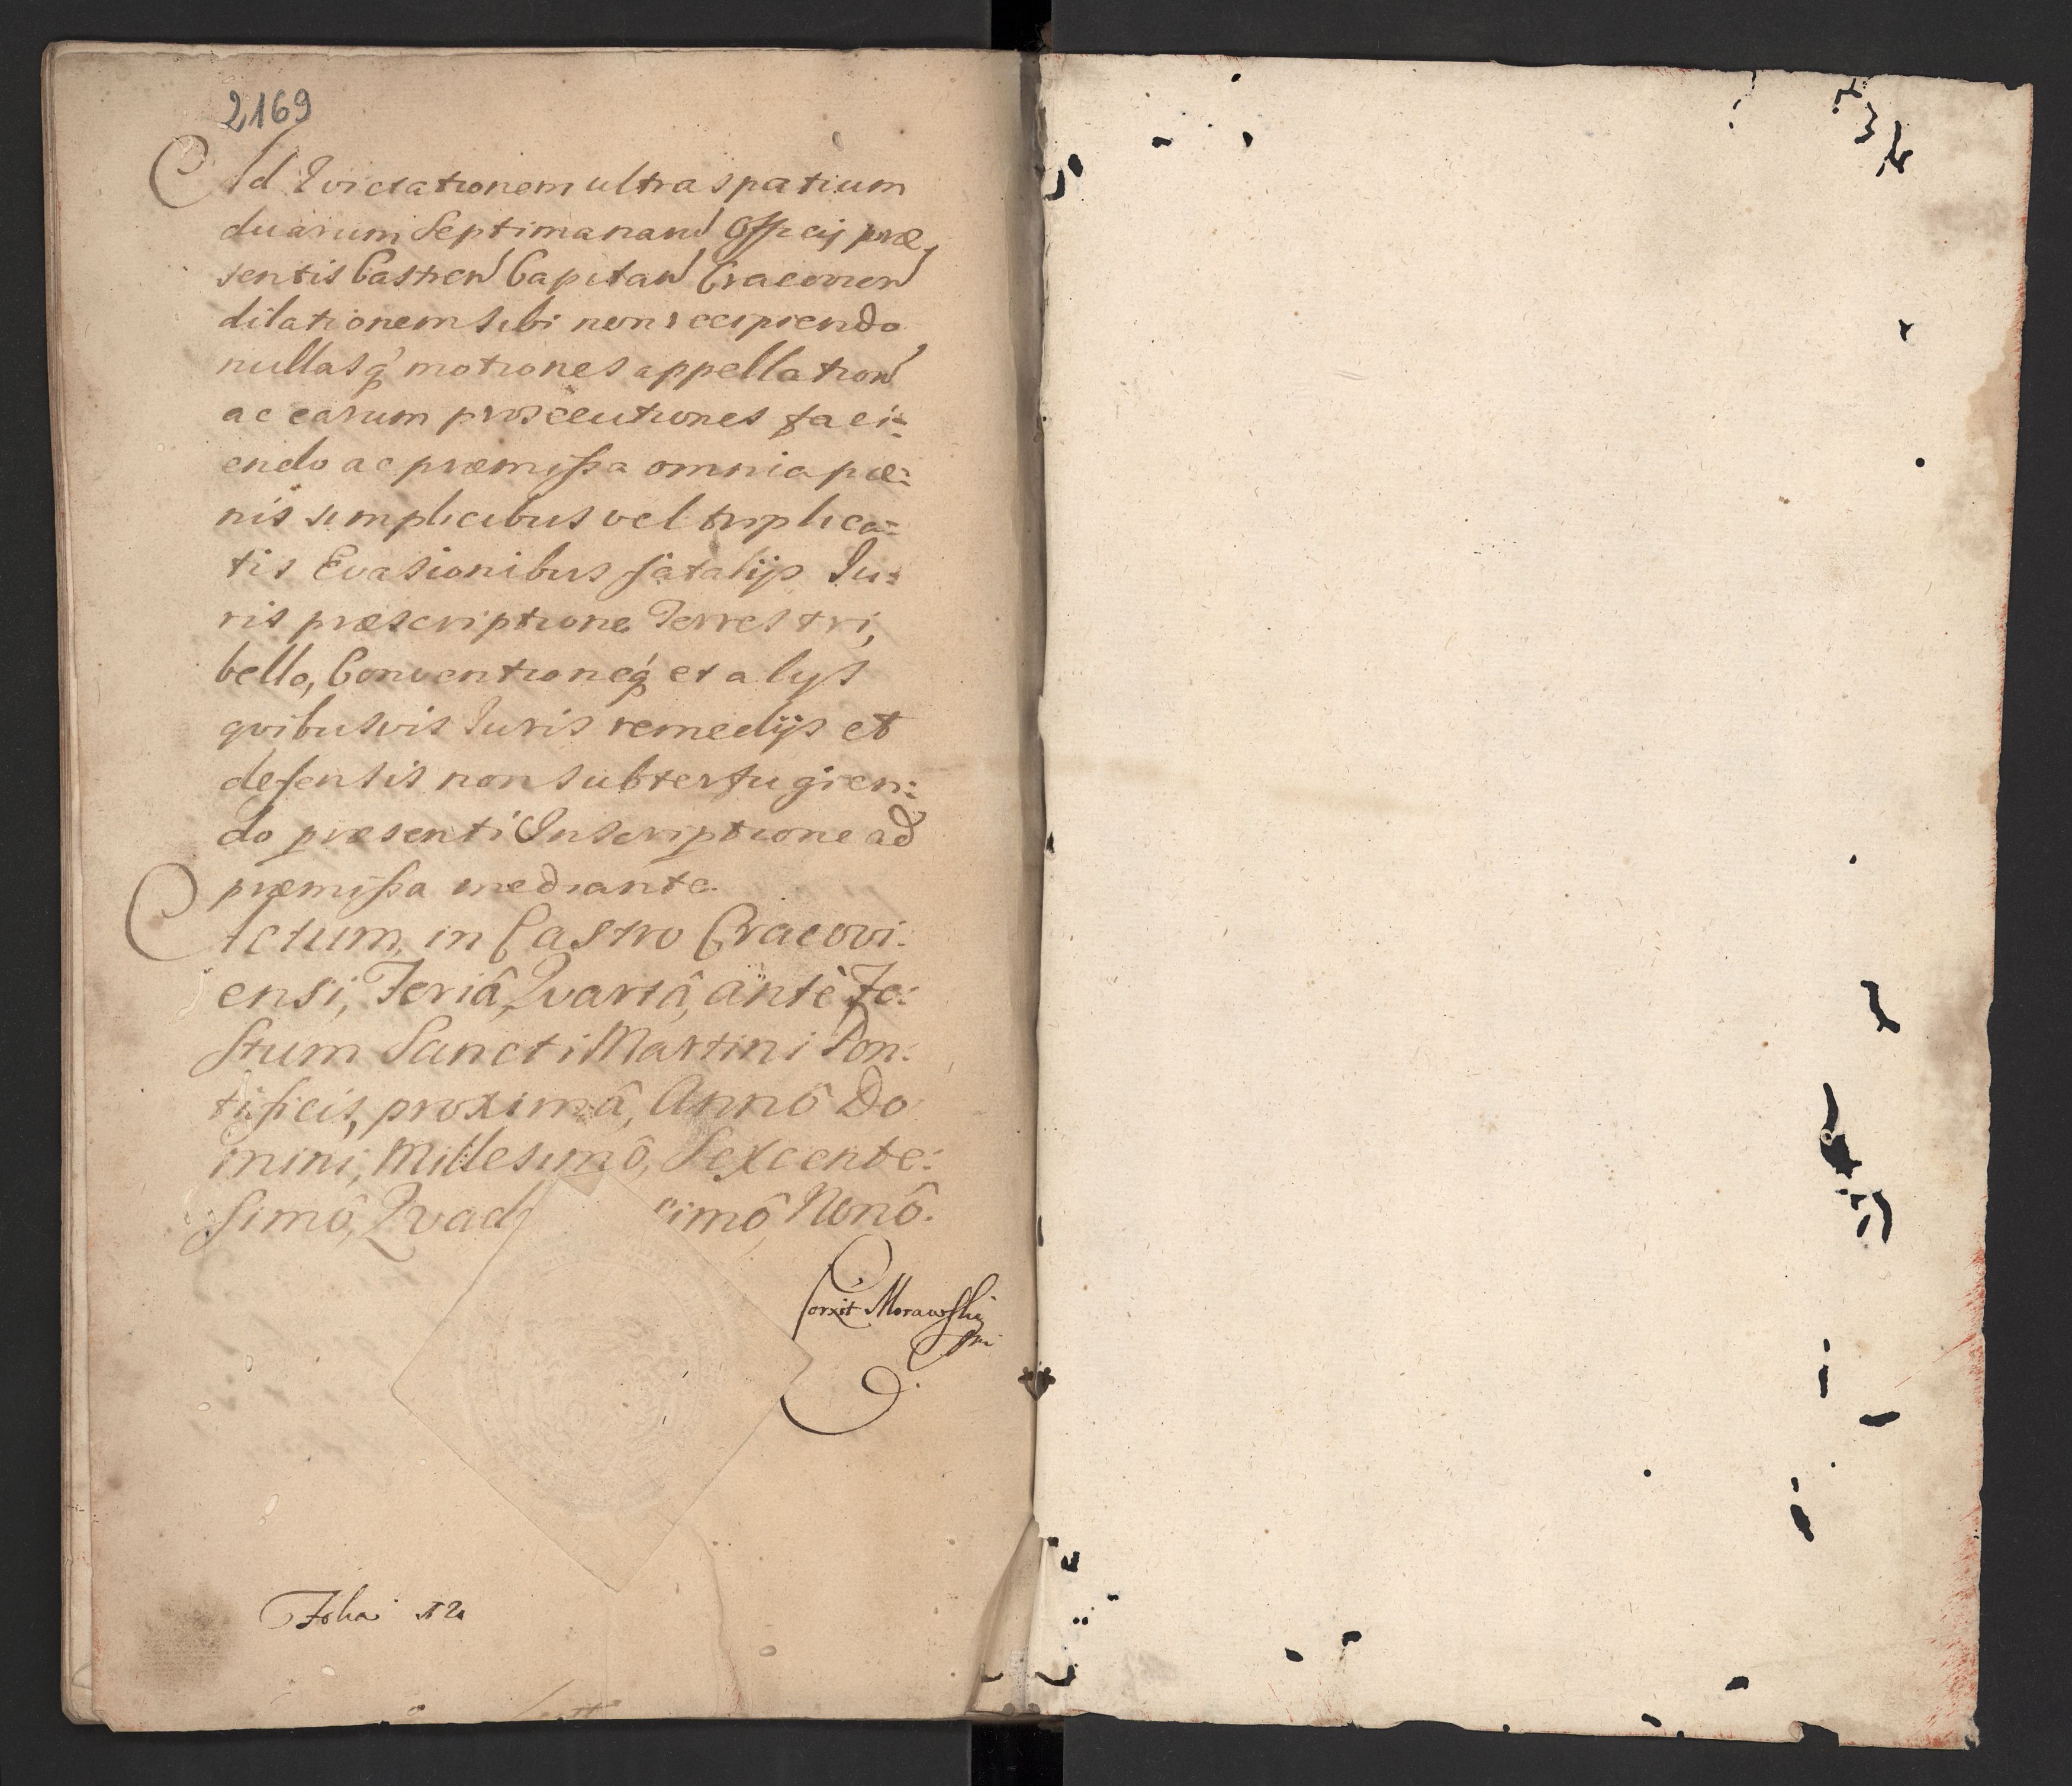 2169
Ad Evictationem ultra spatium
duarum Septimanarum Officij præ
sentis Castren Capitan Cracovien
dilationem sibi non recipiendo
nullasq motiones appellation
ac earum prosecutiones faci:
endo ac præmissa omnia pæ:
nis simplicibus vel triplica:
tis Evasionibus fatalijs Iu:
ris præscriptione Terrestri,
bello, Conventioneq et alys
qvibusvis Iuris remedijs et
defensis non subterfugien:
do præsenti Inscriptione ad
præmissa mediante.
Actum in Castro Cracovi:
ensi, Feriâ Qvartâ, antè Fe:
stum Sancti Martini Pon:
tificis, proximâ, Annô Do
mini, Millesimô, Sexcente:
simô, Qvad simô Nonô.
Morawski
Folia 12